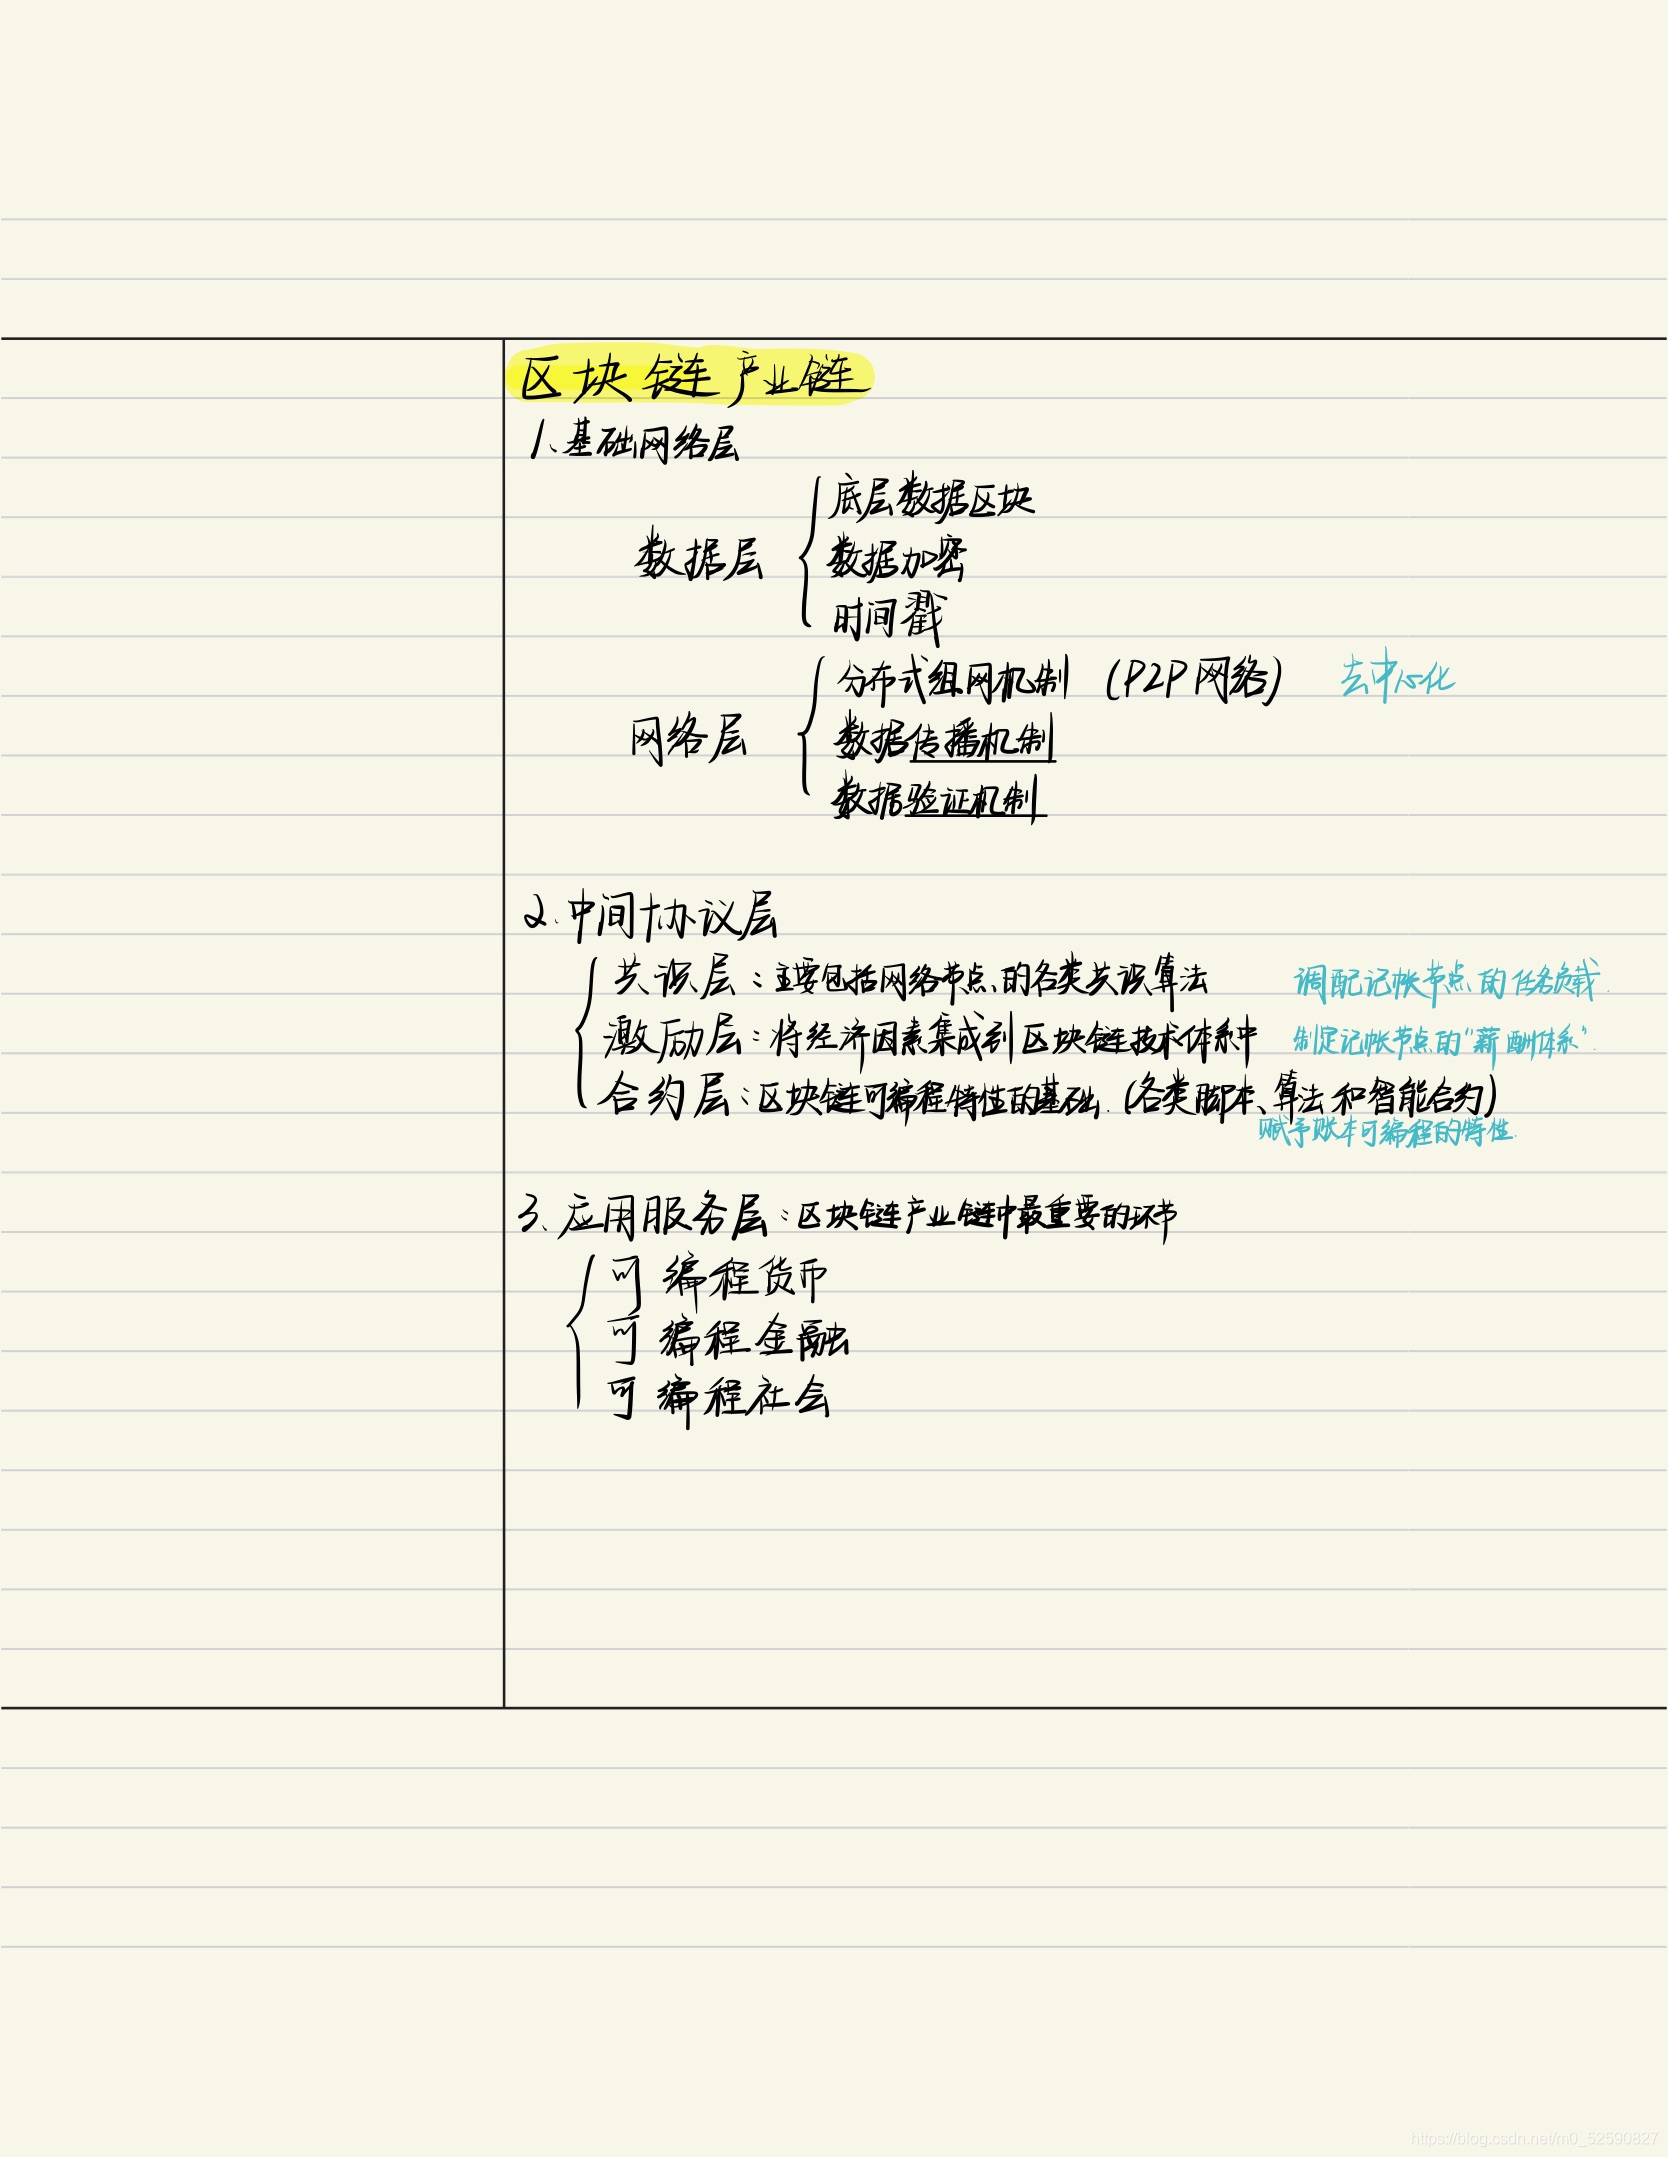 区块链产业链
1、基础网络层
底层数据区块
数据层
数据加密
时间戳
分布式组网机制 (P2P网络) 去中心化
网络层
数据传播机制
数据验证机制
2、中间协议层
共识层：主要包括网络节点的各类共识算法 调配记帐节点的任务负载.
激励层：将经济因素集成到区块链技术体系中 制定记帐节点的“薪酬体系”.
合约层：区块链可编程特性的基础.(各类脚本、算法和智能合约)
赋予账本可编程的特性.
3、应用服务层：区块链产业链中最重要的环节
可编程货币
可编程金融
可编程社会
https://blog.csdn.net/m0_52590827